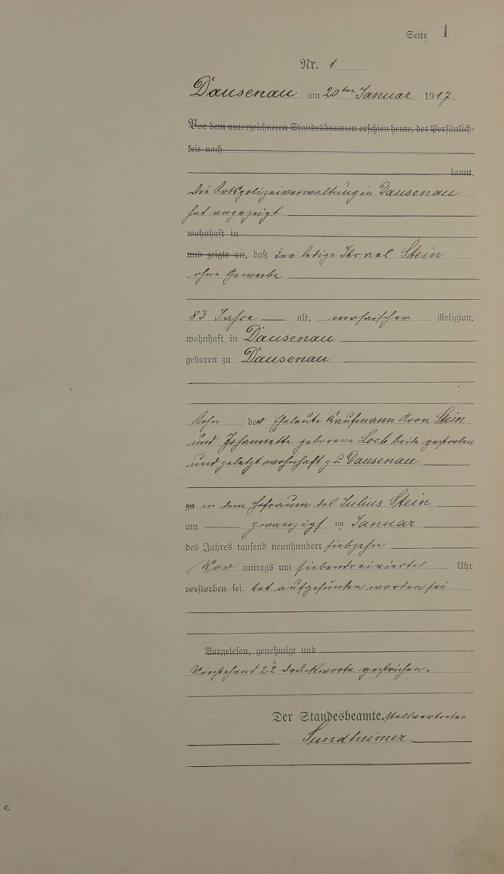 Seite 1
Nr. 1
Dausenau am 20ten Januar 1917.
Vor dem unterzeichneten Standesbeamten erschien heute, der Persönlich-
keit nach
kannt,
die Ortspolizeiverwaltung in Dausenau
hat angezeigt
wohnhaft in
und zeigte an, daß der ledige Israel Stein
ohne Gewerbe
83 Jahre alt, mosaischer Religion,
wohnhaft in Dausenau
geboren zu Dausenau
Sohn der Eheleute Kaufmann Aron Stein
und Johannette geborene Loeb beide gestorben
und zuletzt wohnhaft zu Dausenau
zu in dem Hofraum des Julius Stein
am zwanzigsten Januar
des Jahres tausend neunhundert siebzehn
Vor mittags um siebendreiviertel Uhr
verstorben sei. tot aufgefunden worden sei
Vorgelesen, genehmigt und
Vorstehend 22 Druckworte gestrichen.
Der Standesbeamte. Stellvertreter
Sundheimer
C.